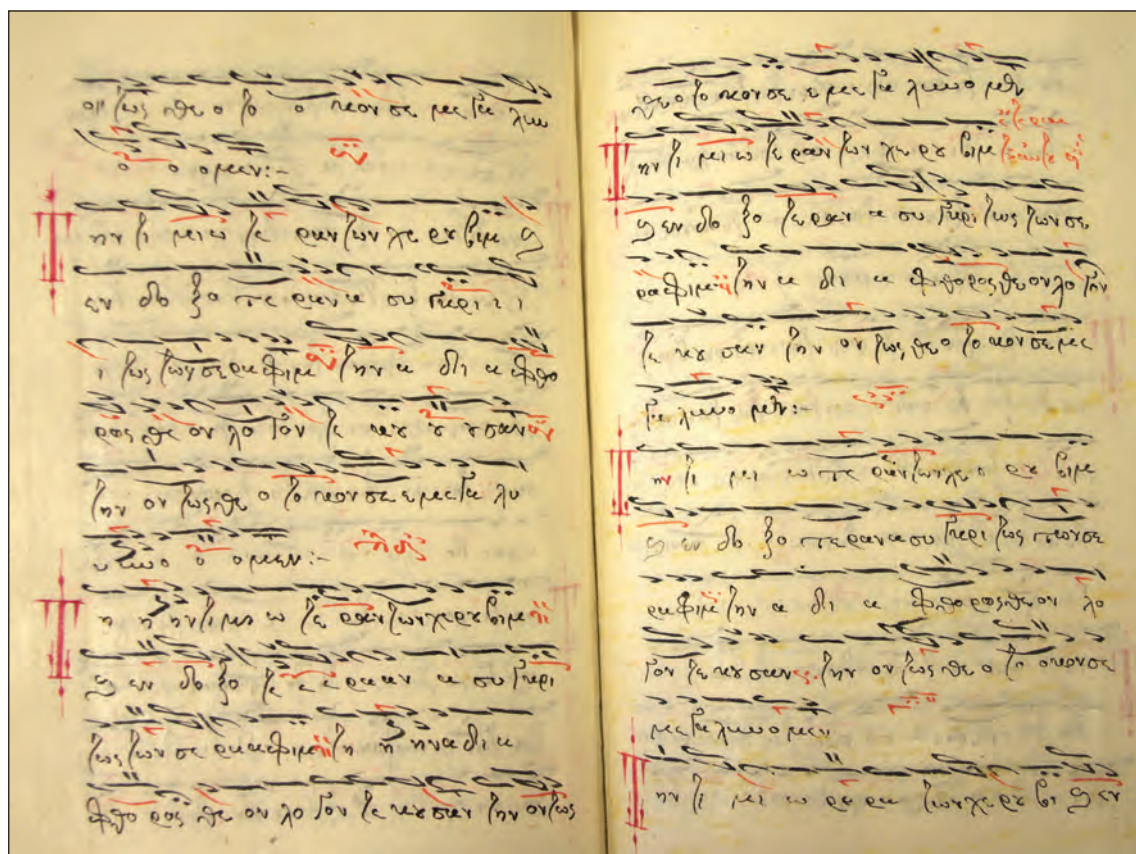 οι τως θε ο το ο κον σε με γα λυν
ο ο ο μεν:-
Τ ην τι μι ω τε ραν των χε ρου βιμ ϗ
εν δο ξο τε ραν α συ γκρι ι ι
ι τως των σε ρα φιμ την α δι α φθο
ρος θε ον λο γον τε κου ου ου σαν
την ον τως θε ο το κον σε ε με γα λυ
υ υνο ο ο μεν:-
Τ η η ην τι μι ω τε ραν των χε ρου βιμ
ϗ εν δο ξο τε ε ε ρα αν α συ γκρι
τως των σε ρα α φιμ τη η ην α δι α
φθο ρος θε ον λο γον τε κου σαν την ον τως
θε ο το κον σε ε με γα λυνο μεν
Τ ην τι μι ω τε ραν των χε ρου βιμ
ϗ εν δο ξο τε ραν α συ γκρι τως των σε
ρα φιμ την α δι α φθο ρος θε ον λο γον
τε κου σαν την ον τως θε ο το κον σε με
γα λυνο μεν:-
Τ ην τι μι ω τε ραν των χε ο ρου βιμ
ϗ εν δο ξο τε ραν α συ γκρι τως των σε
ρα φιμ την α δι α φθο ρος θε ον λο
γον τε κου σαν την ον τως θε ο το οκον σε
με γα λυνο μεν
Τ ην τι μι ω ρε ρα των χε ρου βι ϗ εν